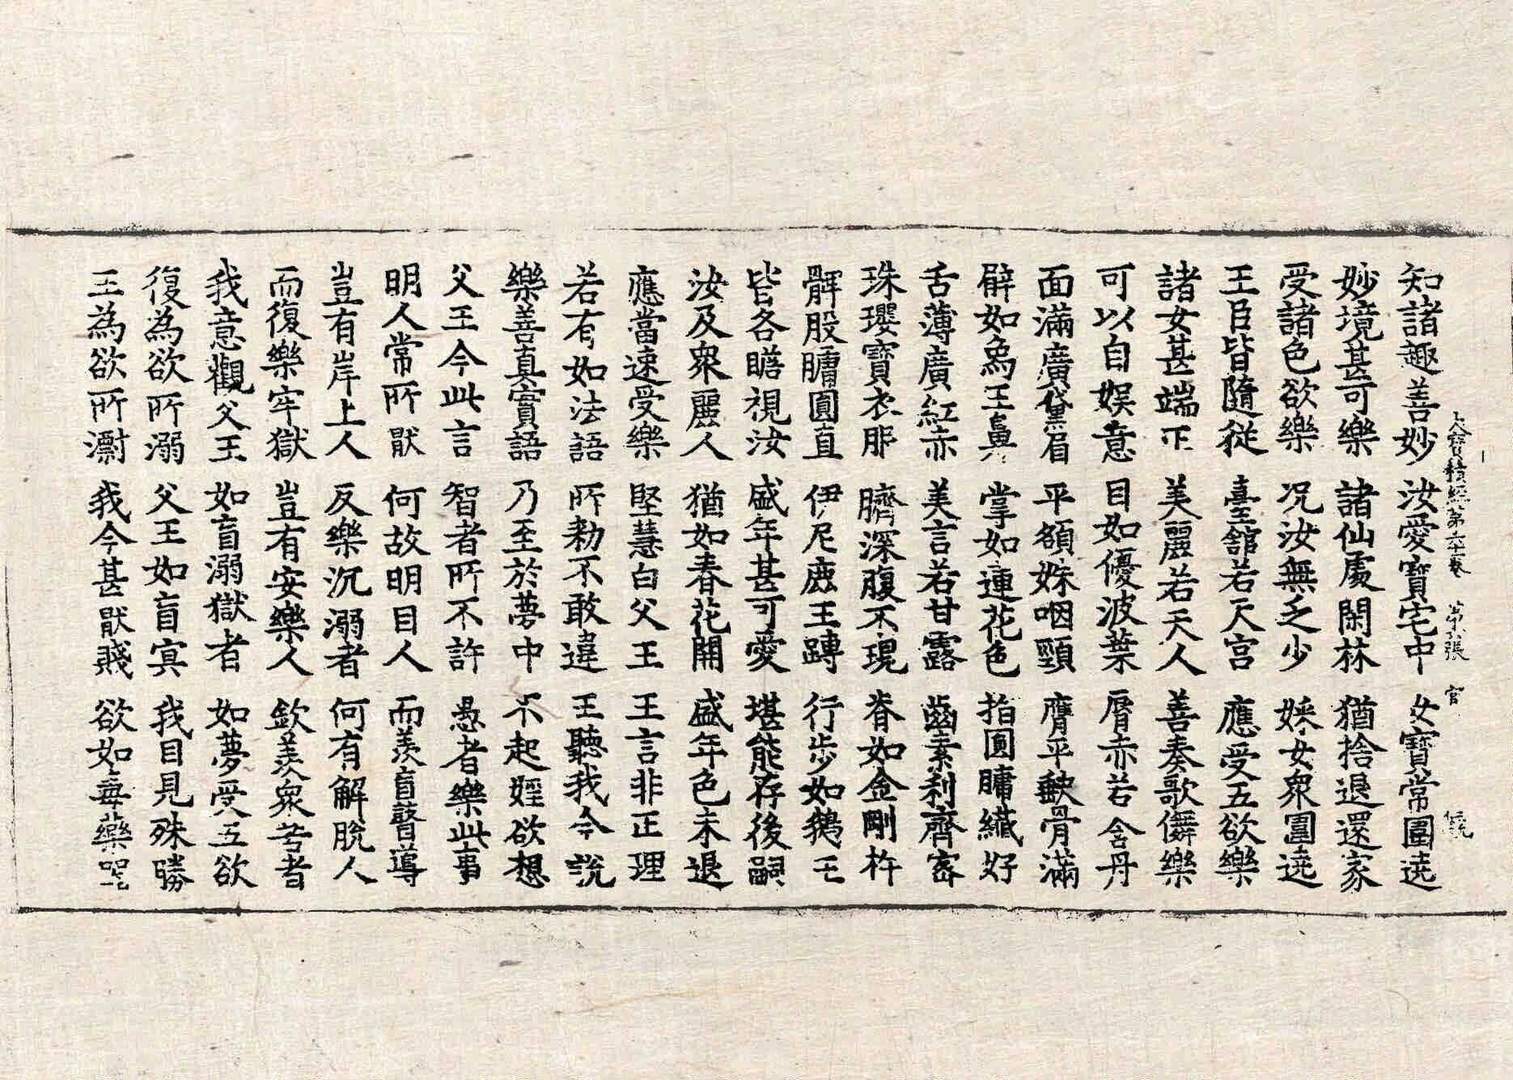 大寶積經第六十一卷 第六張 官
知諸趣善妙 汝愛寶宅中 女寶常圍遶
妙境甚可樂 諸仙處閑林 猶捨退還家
受諸色欲樂 况汝無乏少 婇女眾圍遶
王臣皆隨從 臺舘若天宮 應受五欲樂
諸女甚端正 美麗若天人 善奏歌儛樂
可以自娛意 目如優波葉 脣赤若含丹
面滿廣黛眉 平額姝咽頸 膺平缺骨滿
臂如象王鼻 掌如連花色 指圓𦟛纖好
舌薄廣紅赤 美言若甘露 齒素利齊密
珠瓔寶衣服 臍深腹不現 脊如金剛杵
髀股𦟛圓直 伊尼鹿王蹲 行步如鵝王
皆各瞻視汝 盛年甚可愛 堪能存後嗣
汝及眾麗人 猶如春花開 盛年色未退
應當速受樂 堅慧白父王 王言非正理
若有如法語 所勑不敢違 王聽我今說
樂善真實語 乃至於夢中 不起婬欲想
父王今此言 智者所不許 愚者樂此事
明人常所猒 何故明目人 而羨盲瞽導
豈有岸上人 反樂沉溺者 何有解脫人
而復樂牢獄 豈有安樂人 欽羨眾苦者
我意觀父王 如盲溺獄者 如夢受五欲
復為欲所溺 父王如盲㝠 我目見殊勝
王為欲所𤄃 我今甚猒賤 欲如毒藥㘁